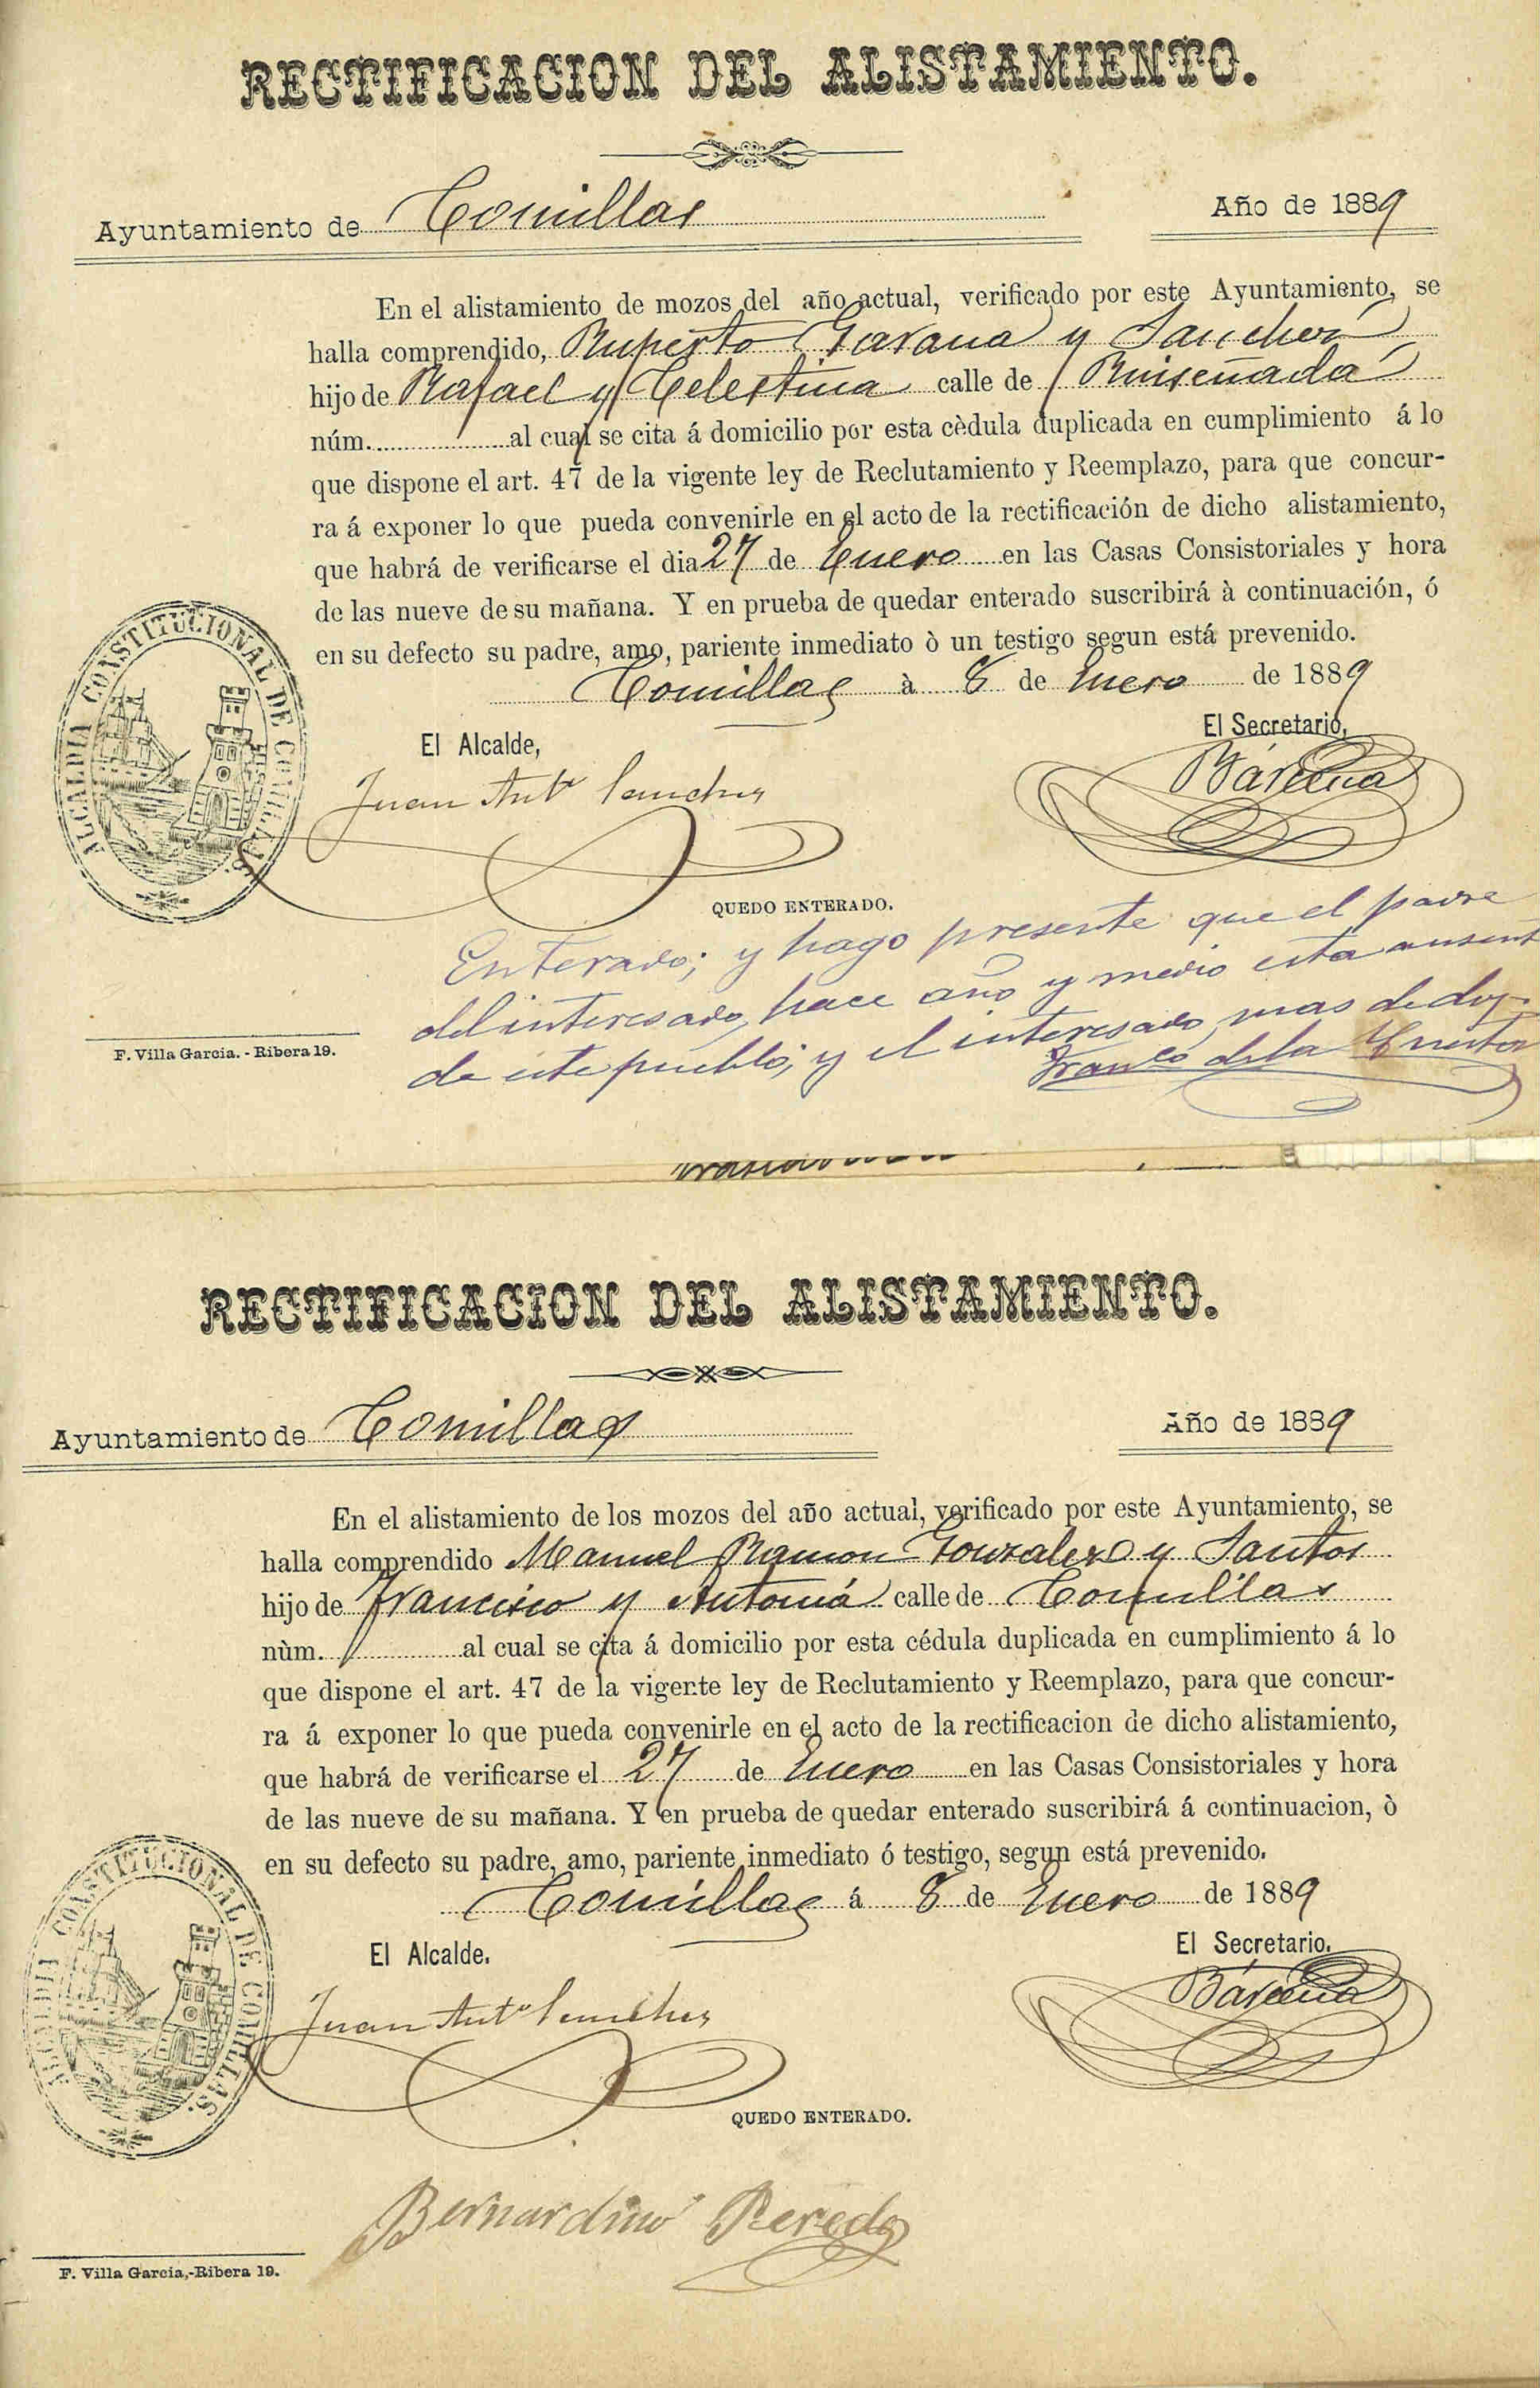 RECTIFICACION DEL ALISTAMIENTO.
Ayuntamiento de Comillas Año de 1889
En el alistamiento de mozos del año actual, verificado por este Ayuntamiento, se
halla comprendido, Ruperto y Sanchez
hijo de Rafael y Celestina calle de Ruiseñada
núm. al cual se cita á domicilio por esta cèdula duplicada en cumplimiento á lo
que dispone el art. 47 de la vigente ley de Reclutamiento y Reemplazo, para que concur-
ra á exponer lo que pueda convenirle en el acto de la rectificación de dicho alistamiento,
que habrá de verificarse el dia 27 de Enero en las Casas Consistoriales y hora
de las nueve de su mañana. Y en prueba de quedar enterado suscribirá à continuación, ó
en su defecto su padre, amo, pariente inmediato ò un testigo segun está prevenido.
Comillas à 8 de Enero de 1889
El Alcalde, El Secretario,
Juan Antº Sanchez Bárcena
ALCALDIA CONSTITUCIONAL DE COMILLAS.
QUEDO ENTERADO.
Enterado; y hago presente que el padre
del interesado, hace año y medio esta ausent
de este pueblo; y el interesado, mas de dos.
Franco de la
F. Villa Garcia. - Ribera 19.
RECTIFICACION DEL ALISTAMIENTO.
Ayuntamiento de Comillas Año de 1889
En el alistamiento de los mozos del año actual, verificado por este Ayuntamiento, se
halla comprendido Manuel Ramon Gonzalez y Santos
hijo de Francisco y Antonia calle de Comillas
nùm. al cual se cita á domicilio por esta cédula duplicada en cumplimiento á lo
que dispone el art. 47 de la vigente ley de Reclutamiento y Reemplazo, para que concur-
ra á exponer lo que pueda convenirle en el acto de la rectificacion de dicho alistamiento,
que habrá de verificarse el 27 de Enero en las Casas Consistoriales y hora
de las nueve de su mañana. Y en prueba de quedar enterado suscribirá á continuacion, ò
en su defecto su padre, amo, pariente inmediato ó testigo, segun está prevenido.
Comillas á 8 de Enero de 1889
El Alcalde. El Secretario.
Juan Antº Sanchez Bárcena
ALCALDIA CONSTITUCIONAL DE COMILLAS.
QUEDO ENTERADO.
Bernardino Pereda
F. Villa Garcia,-Ribera 19.